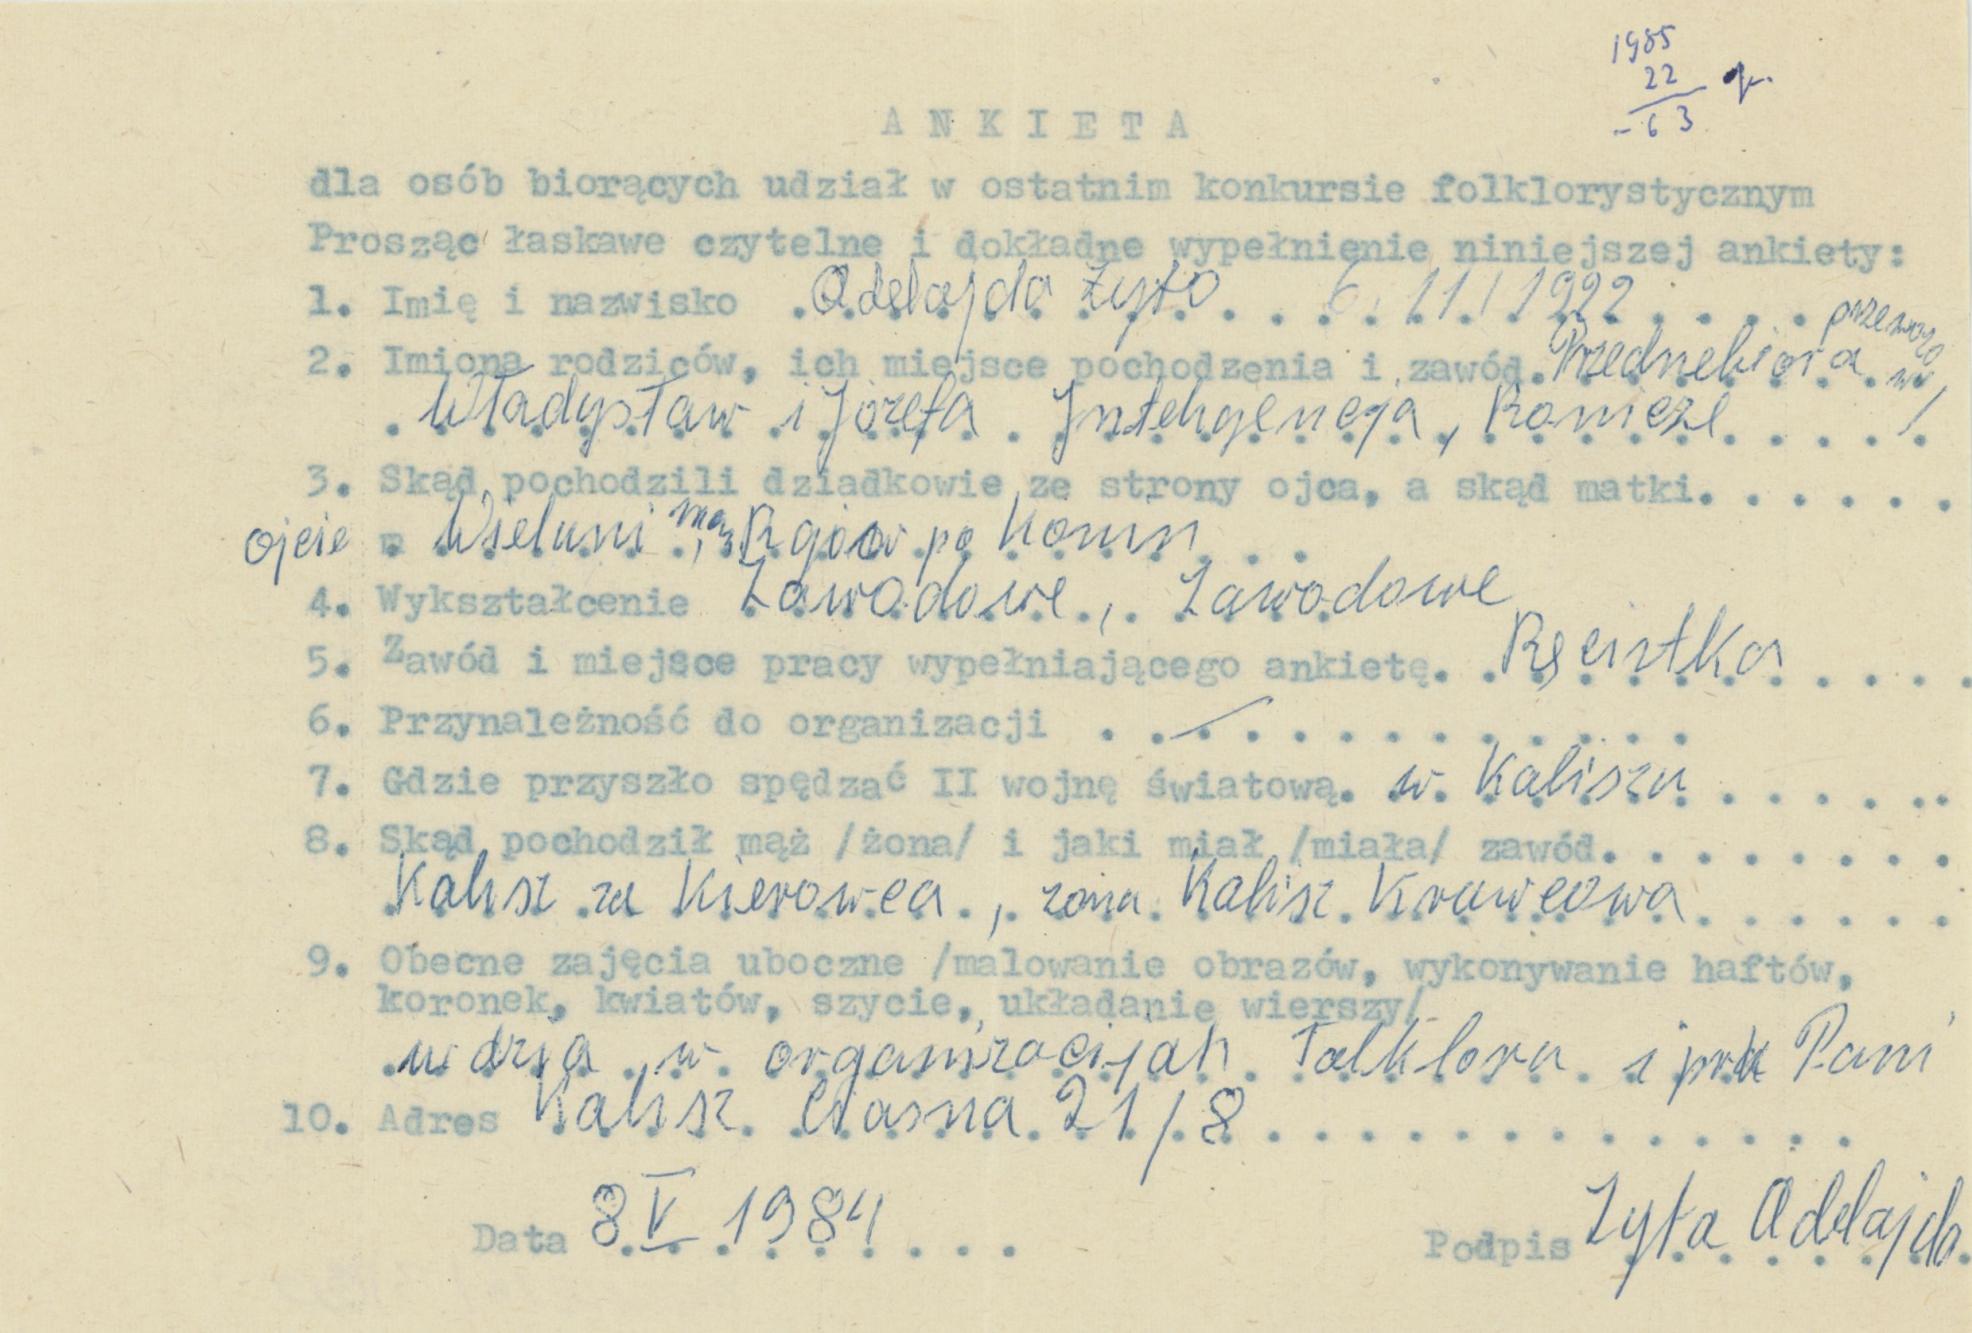 1985
22
- 63
A N K I E T A
dla osób biorących udział w ostatnim konkursie folklorystycznym
Prosząc łaskawe czytelne i dokładne wypełnienie niniejszej ankiety:
1. Imię i nazwisko Adelajda Zyta 6. 11. 1922
2. Imiona rodziców, ich miejsce pochodzenia i zawód.
Władysław i Józefa Inteligencja,
3. Skąd pochodzili dziadkowie ze strony ojca, a skąd matki.
ojcie Wieluni Rgów po Konin
4. Wykształcenie Zawodowe, Zawodowe
5. Zawód i miejsce pracy wypełniającego ankietę. Ręcistka
6. Przynależność do organizacji
7. Gdzie przyszło spędzać II wojnę światową. w Kaliszu
8. Skąd pochodził mąż /żona/ i jaki miał /miała/ zawód.
Kalisz za Kierowca, zona Kalisz Krawcowa
9. Obecne zajęcia uboczne /malowanie obrazów, wykonywanie haftów,
koronek, kwiatów, szycie, układanie wierszy/
w organizacijah Folklora i Pani
10. Adres Kalisz 21/8
Data 8 V 1984
Podpis Zyta Adelajda